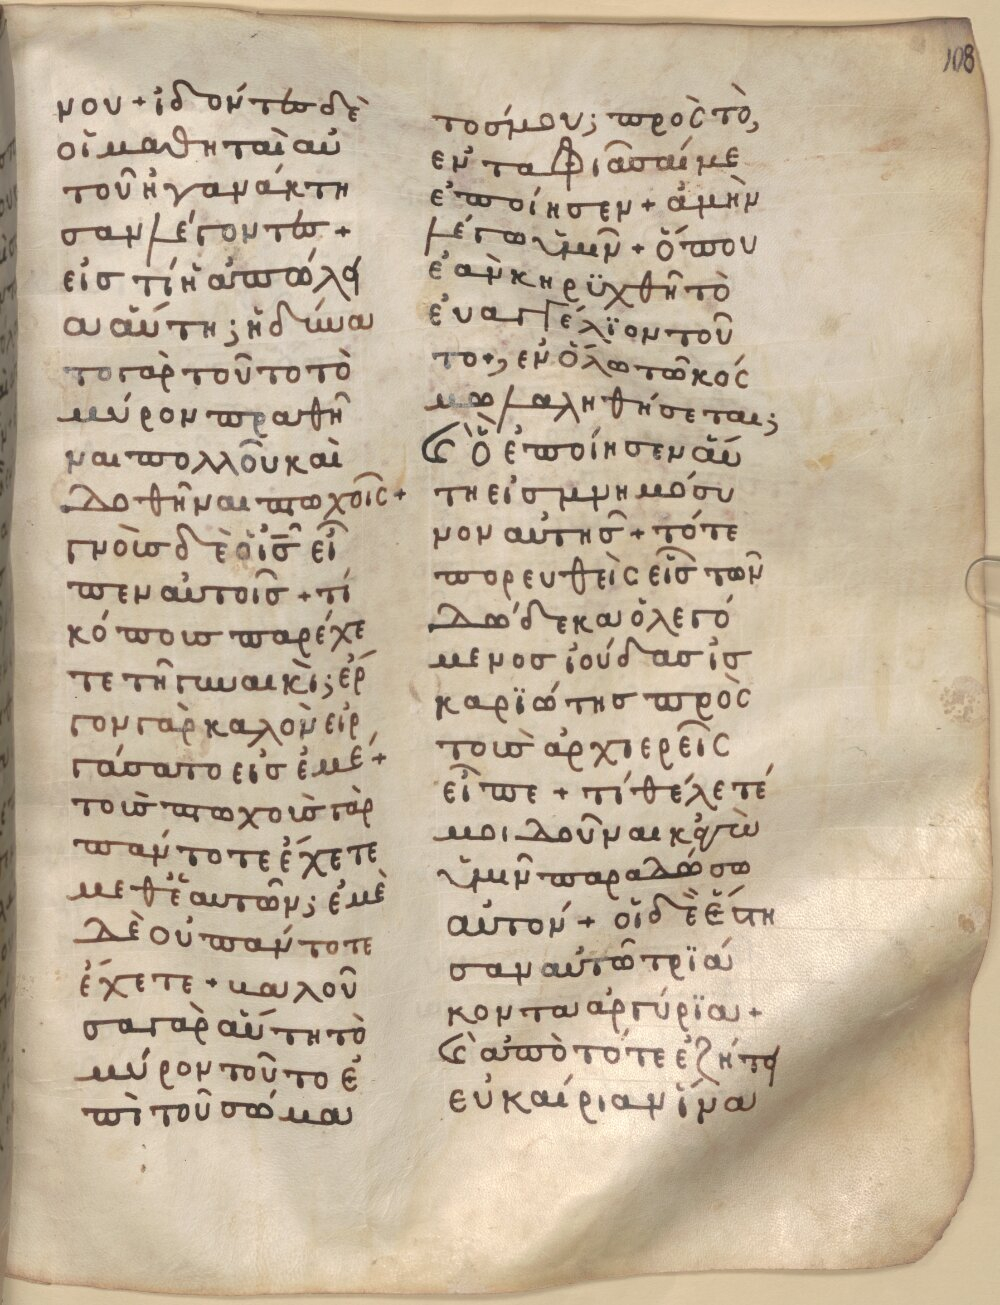 108
μου + ἰδόντες δὲ
οἱ μαθηταὶ αὐ
τοῦ ἠγανάκτη
σαν λέγοντες +
εἰς τί ἡ ἀπώλει
α αὕτη; ἠδύνα
το γὰρ τοῦτο τὸ
μύρον πραθῆ
ναι πολλοῦ καὶ
δοθῆναι πτωχοῖς +
γνοὺς δὲ ὁ ἰς εἶ
πεν αὐτοῖς + τί
κόπους παρέχε
τε τῆ γυναικὶ; ἔρ
γον γὰρ καλὸν εἰρ
γάσατο εἰς ἐμέ +
τοὺς πτωχοὺς γὰρ
πάντοτε ἔχετε
μεθ ἑαυτῶν; ἐμὲ
δὲ οὐ πάντοτε
ἔχετε + βαλοῦ
σα γὰρ αὕτη τὸ
μύρον τοῦτο ἐ
πὶ τοῦ σώμα
τοσ μου; πρὸς τὸ,
ενταφιᾶσαί με
ἐποίησεν + ἀμὴν
λέγω ὑμῖν + ὅπου
ἐὰν κηρϋχθῆ τὸ
ἐυαγγέλϊον τοῦ
το +, ἐν ὅλω τῶ κόσ
μω λαληθήσεται;
ϗ ὃ ἐποίησεν αὕ
τη εἰς μνημόσυ
νον αὐτῆς + τότε
πορευθεὶς εἷς τῶν
δώδεκα ὁ λεγό
μενος ἰούδας ἰσ
καρϊώτης πρὸς
τοὺς ἀρχιερεῖς
εἶπε + τί θέλετέ
μοι δοῦναι κἀγὼ
ὑμῖν παραδώσω
αὐτόν + οἱ δὲ ἔστη
σαν αὐτῶ τρϊά
κοντα αργύρϊα +
ϗ ἀπὸ τότε ἐζήτει
εὐκαίριαν ἵνα